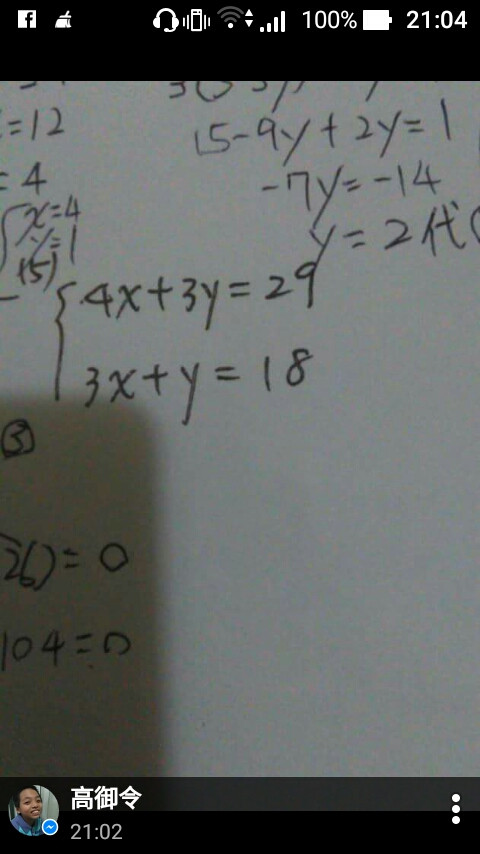 100% 21:04
=12
15-9y+2y=1
=4
-7y=-14
x=4
y=1
y=2代
(5)
4x+3y=29
3x+y=18
③
26)=0
104=0
高御令
21:02